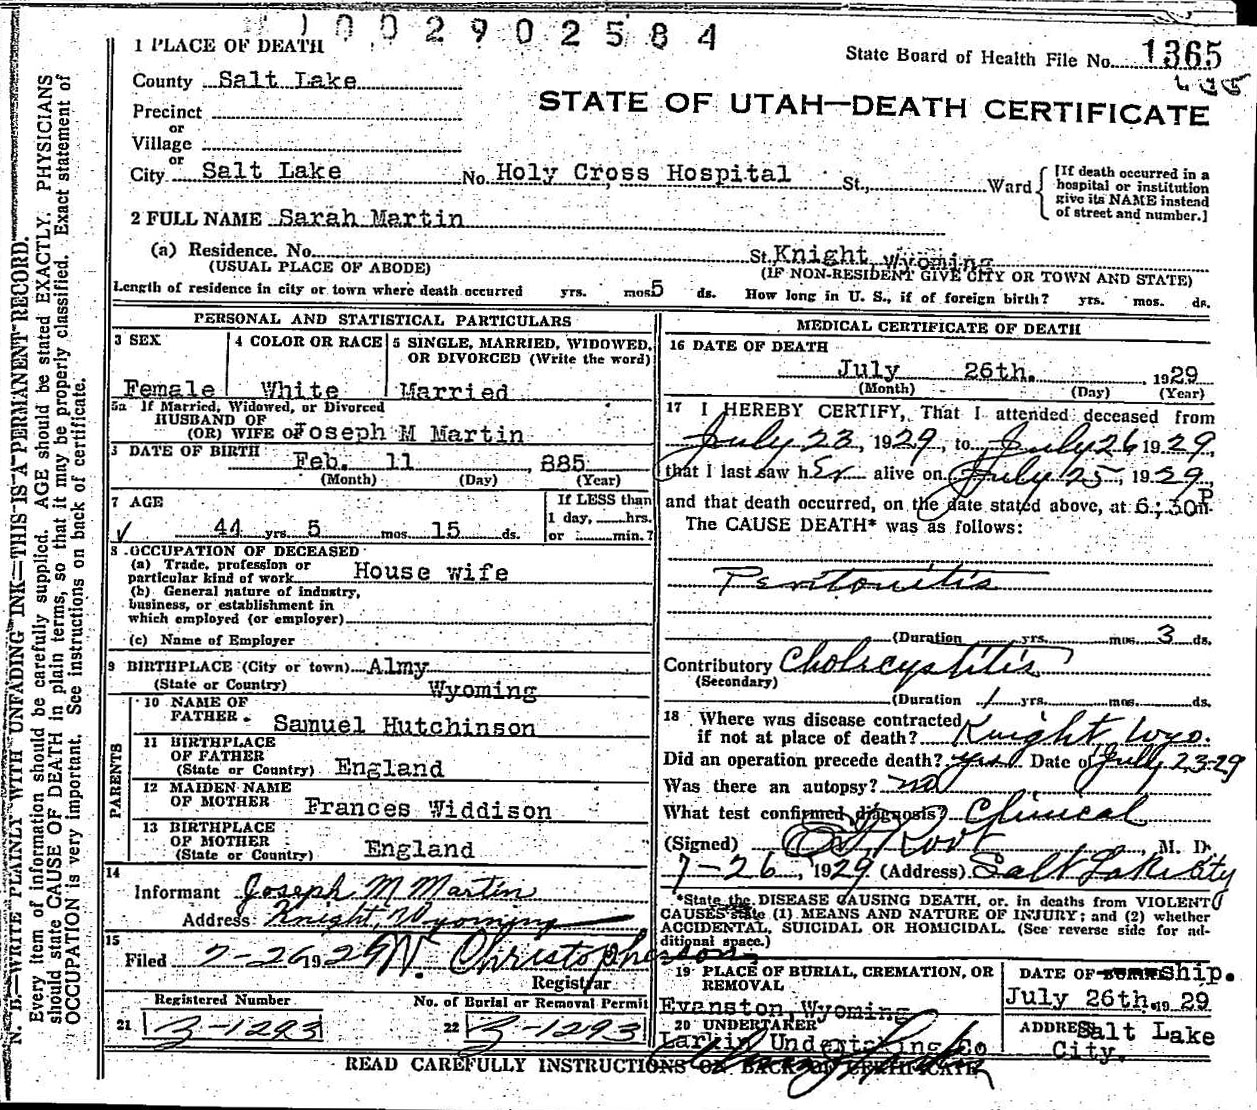 1002902584
1 PLACE OF DEATH
State Board of Health File No. 1365
County Salt Lake
STATE OF UTAH—DEATH CERTIFICATE
Precinct
or
Village
or
City Salt Lake No. Holy Cross Hospital St., Ward
[If death occurred in a
hospital or institution
give its NAME instead
of street and number.]
2 FULL NAME Sarah Martin
(a) Residence. No. St. Knight, Wyoming
(USUAL PLACE OF ABODE) (IF NON-RESIDENT GIVE CITY OR TOWN AND STATE)
Length of residence in city or town where death occurred yrs. mos. 5 ds. How long in U. S., if of foreign birth? yrs. mos. ds.
PERSONAL AND STATISTICAL PARTICULARS
3 SEX
Female
4 COLOR OR RACE
White
5 SINGLE, MARRIED, WIDOWED,
OR DIVORCED (Write the word)
Married
5a If Married, Widowed, or Divorced
HUSBAND OF
(OR) WIFE OF Joseph M Martin
DATE OF BIRTH
Feb. 11 , 885
(Month) (Day) (Year)
7 AGE
44 yrs. 5 mos. 15 ds.
If LESS than
1 day, hrs.
or min.?
8 OCCUPATION OF DECEASED
(a) Trade, profession or
particular kind of work House wife
(b) General nature of industry,
business, or establishment in
which employed (or employer)
(c) Name of Employer
9 BIRTHPLACE (City or town) Almy
(State or Country) Wyoming
PARENTS
10 NAME OF
FATHER Samuel Hutchinson
11 BIRTHPLACE
OF FATHER
(State or Country) England
12 MAIDEN NAME
OF MOTHER Frances Widdison
13 BIRTHPLACE
OF MOTHER
(State or Country) England
14
Informant Joseph M Martin
Address Knight, Wyoming
15
Filed 7-26 1929 W. Christopherson
Registrar
Registered Number No. of Burial or Removal Permit
21 3-1293 22 3-1293
MEDICAL CERTIFICATE OF DEATH
16 DATE OF DEATH
July 26th. , 1929
(Month) (Day) (Year)
17 I HEREBY CERTIFY, That I attended deceased from
July 23, 1929, to July 26 1929,
that I last saw her alive on July 25, 1929,
and that death occurred, on the date stated above, at 6:30 P m.
The CAUSE DEATH* was as follows:
Peritonitis
(Duration yrs. mos. 3 ds.
Contributory Cholicystitis
(Secondary)
(Duration 1 yrs. mos. ds.
18 Where was disease contracted
if not at place of death? Knight Wyo.
Did an operation precede death? yes Date of July 23-29
Was there an autopsy? no
What test confirmed diagnosis? Clinical
(Signed) M. D.
7-26, 1929 (Address) Salt Lake City
*State the DISEASE CAUSING DEATH, or in deaths from VIOLENT
CAUSES state (1) MEANS AND NATURE OF INJURY; and (2) whether
ACCIDENTAL, SUICIDAL OR HOMICIDAL. (See reverse side for ad-
ditional space.)
19 PLACE OF BURIAL, CREMATION, OR
REMOVAL
Evanston, Wyoming
DATE OF ship.
July 26th. 1929
20 UNDERTAKER
Larkin Undertaking Co
ADDRESS Salt Lake
City.
READ CAREFULLY INSTRUCTIONS ON BACK OF CERTIFICATE
N. B.—WRITE PLAINLY WITH UNFADING INK—THIS IS A PERMANENT RECORD.
Every item of information should be carefully supplied. AGE should be stated EXACTLY. PHYSICIANS
should state CAUSE OF DEATH in plain terms, so that it may be properly classified. Exact statement of
OCCUPATION is very important. See instructions on back of certificate.